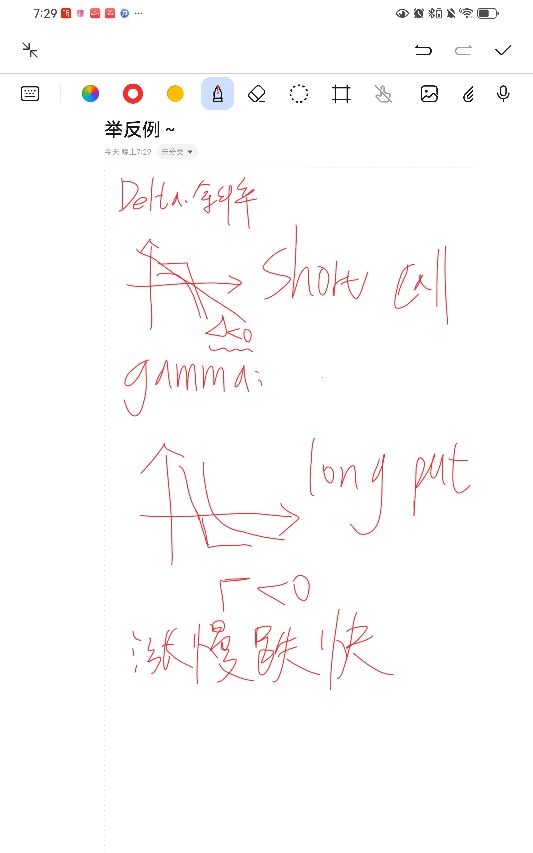 7:29
举反例 ~
今天 晚上7:29 未分类
Delta: 斜率
short call
Δ<0
gamma:
long put
Γ<0
涨慢跌快